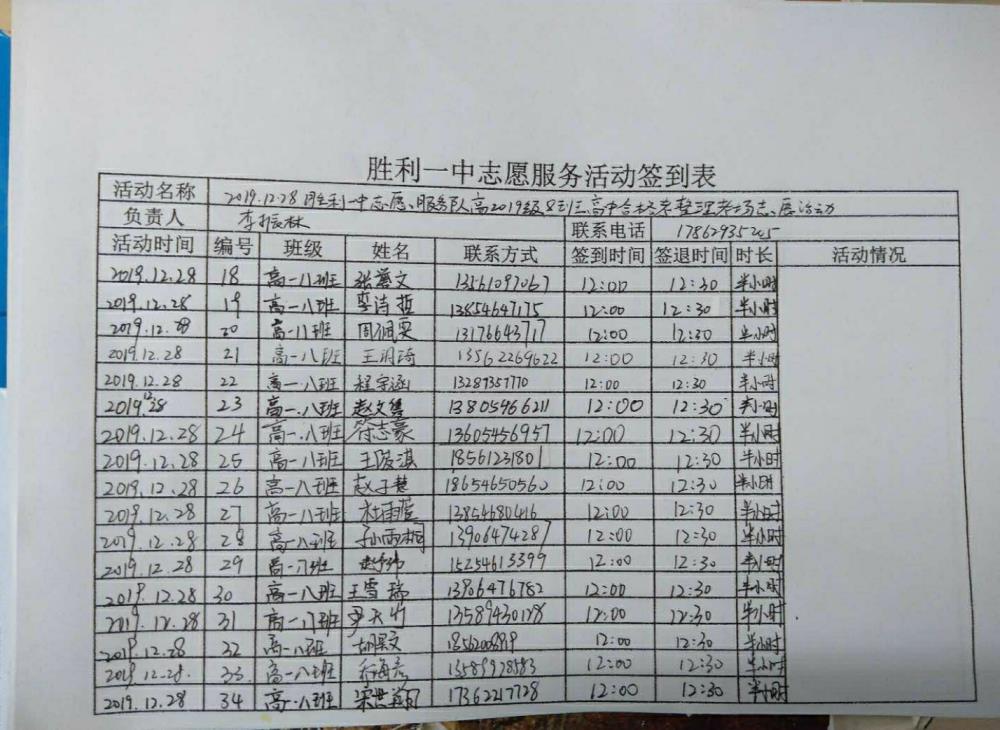 胜利一中志愿服务活动签到表
活动名称 2019.12.28胜利一中志愿服务队高2019级8班高中合格考整理考场志愿活动
负责人 李振林 联系电话 17862935245
活动时间 编号 班级 姓名 联系方式 签到时间 签退时间 时长 活动情况
2019.12.28 18 高一八班 张馨文 13561097067 12:00 12:30 半小时
2019.12.28 19 高一八班 李诗哲 13854647175 12:00 12:30 半小时
2019.12.28 20 高一八班 周佩雯 13176643711 12:00 12:30 半小时
2019.12.28 21 高一八班 王玥琦 13562269622 12:00 12:30 半小时
2019.12.28 22 高一.八班 程宇涵 13287357770 12:00 12:30 半小时
2019.12.28 23 高一.八班 赵文隽 13805466211 12:00 12:30 半小时
2019.12.28 24 高一.八班 符志豪 13605456957 12:00 12:30 半小时
2019.12.28 25 高一八班 王陵淇 18561231801 12:00 12:30 半小时
2019.12.28 26 高一八班 赵子慧 18654650560 12:00 12:30 半小时
2019.12.28 27 高一八班 13854680416 12:00 12:30 半小时
2019.12.28 28 高一八班 孙雨桐 13906474287 12:00 12:30 半小时
2019.12.28 29 高一八班 15254613399 12:00 12:30 半小时
2019.12.28 30 高一八班 王雪瑞 13906476782 12:00 12:30 半小时
2019.12.28 31 高一八班 尹天竹 13589430128 12:00 12:30 半小时
2019.12.28 32 高一八班 12:00 12:30 半小时
2019.12.28. 33 高一八班 乔海彦 13589978583 12:00 12:30 半小时
2019.12.28 34 高一.八班 宋世翔 17362217728 12:00 12:30 半小时